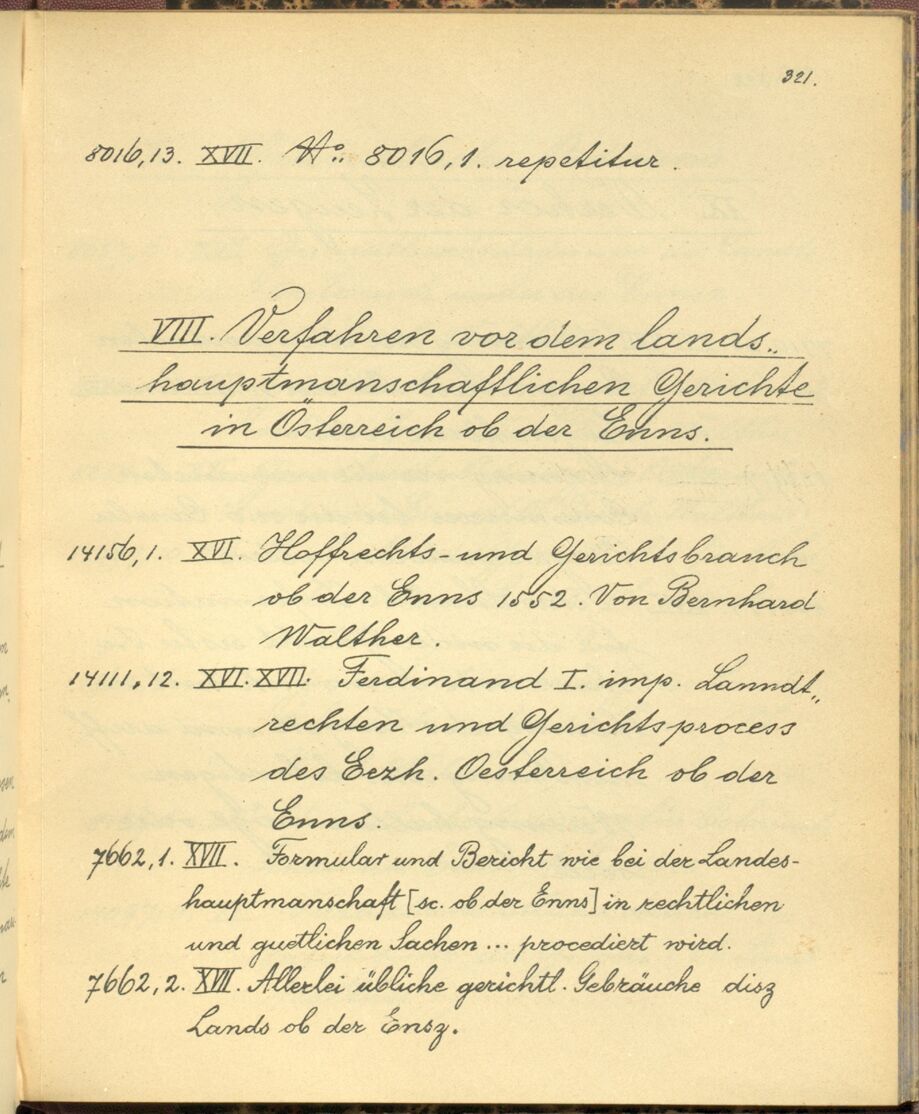 321.
8016,13. XVII. No.. 8016,1. repetitur.
VIII. Verfahren vor dem lands„
hauptmanschaftlichen Gerichte
in Österreich ob der Enns.
14156,1. XVI. Hoffrechts- und Gerichtsbrauch
ob der Enns 1552. Von Bernhard
Walther
14111,12. XVI.XVII. Ferdinand I. imp. Lanndt„
rechten und Gerichtsprocess
des Eezh. Oesterreich ob der
Enns
7662,1. XVII. Formular und Bericht wie bei der Landes-
hauptmanschaft [sc. ob der Enns] in rechtlichen
und guetlichen Sachen ... procediert wird.
7662,2. XVII. Allerlei übliche gerichtl. Gebräuche disz
Lands ob der Ensz.